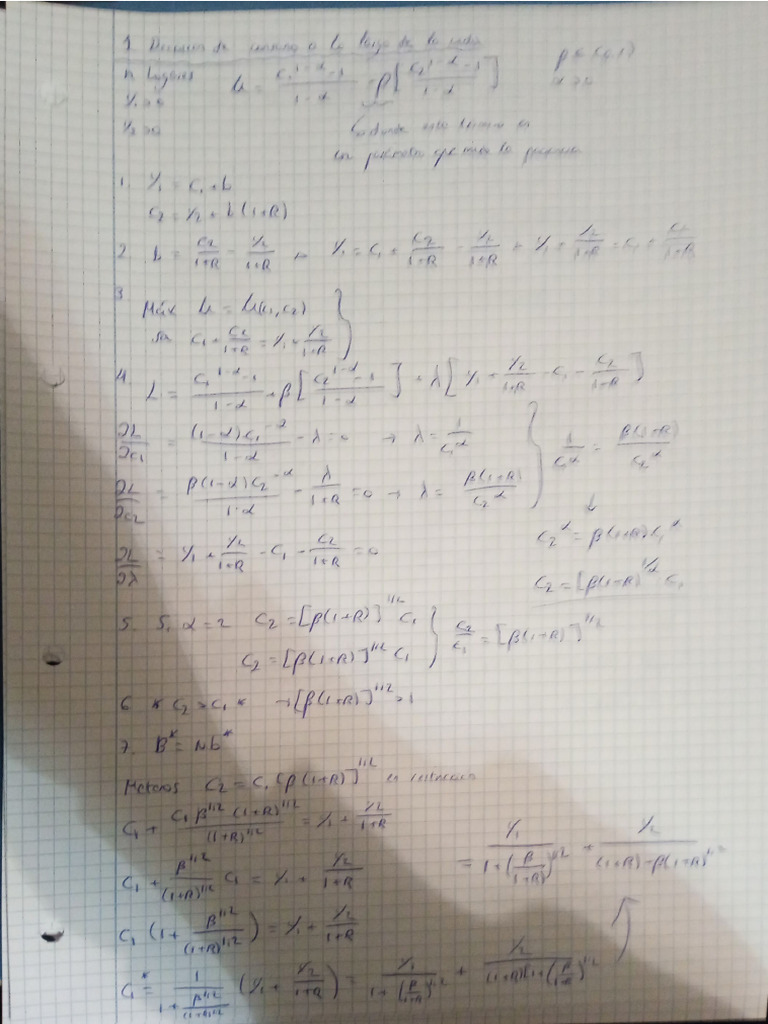 1. Decisión de consumo a lo largo de la vida
N hogares U = (C1^(1-α) -1)/(1-α) + β[(C2^(1-α) -1)/(1-α)] β ∈ (0,1)
Y1 >0 α >0
Y2 >0
1. Y1 = C1 + b
C2 = Y2 + b(1+R)
2. b = C2/(1+R) - Y2/(1+R) → Y1 = C1 + C2/(1+R) - Y2/(1+R) → Y1 + Y2/(1+R) = C1 + C2/(1+R)
3
Máx U = U(C1,C2)
sa C1 + C2/(1+R) = Y1 + Y2/(1+R)
4. L = (C1^(1-α) -1)/(1-α) + β[(C2^(1-α) -1)/(1-α)] + λ[Y1 + Y2/(1+R) - C1 - C2/(1+R)]
∂L/∂C1 = (1-α)C1^(-α)/(1-α) - λ = 0 → λ = 1/C1^α } 1/C1^α = β(1+R)/C2^α
∂L/∂C2 = β(1-α)C2^(-α)/(1-α) - λ/(1+R) = 0 → λ = β(1+R)/C2^α ↓
C2^α = β(1+R)C1^α
∂L/∂λ = Y1 + Y2/(1+R) - C1 - C2/(1+R) = 0
C2 = [β(1+R)^(1/α) C1
5. Si α = 2 C2 = [β(1+R)]^(1/2) C1
C2 = [β(1+R)]^(1/2) C1 } C2/C1 = [β(1+R)]^(1/2)
6 * C2 > C1 * → [β(1+R)]^(1/2) > 1
7. B* = Nb*
Metemos C2 = C1 [β(1+R)]^(1/2) en
C1 + C1 β^(1/2) (1+R)^(1/2)/(1+R)^(1/2) = Y1 + Y2/(1+R)
C1 + β^(1/2)/(1+R)^(1/2) C1 = Y1 + Y2/(1+R)
C1 (1 + β^(1/2)/(1+R)^(1/2)) = Y1 + Y2/(1+R)
C1* = 1/(1 + β^(1/2)/(1+R)^(1/2)) (Y1 + Y2/(1+R)) = Y1/(1 + (β/(1+R))^(1/2)) + Y2/((1+R)[1 + (β/(1+R))^(1/2))
= Y1/(1 + (β/(1+R))^(1/2)) + Y2/((1+R) + β(1+R)^(1/2))